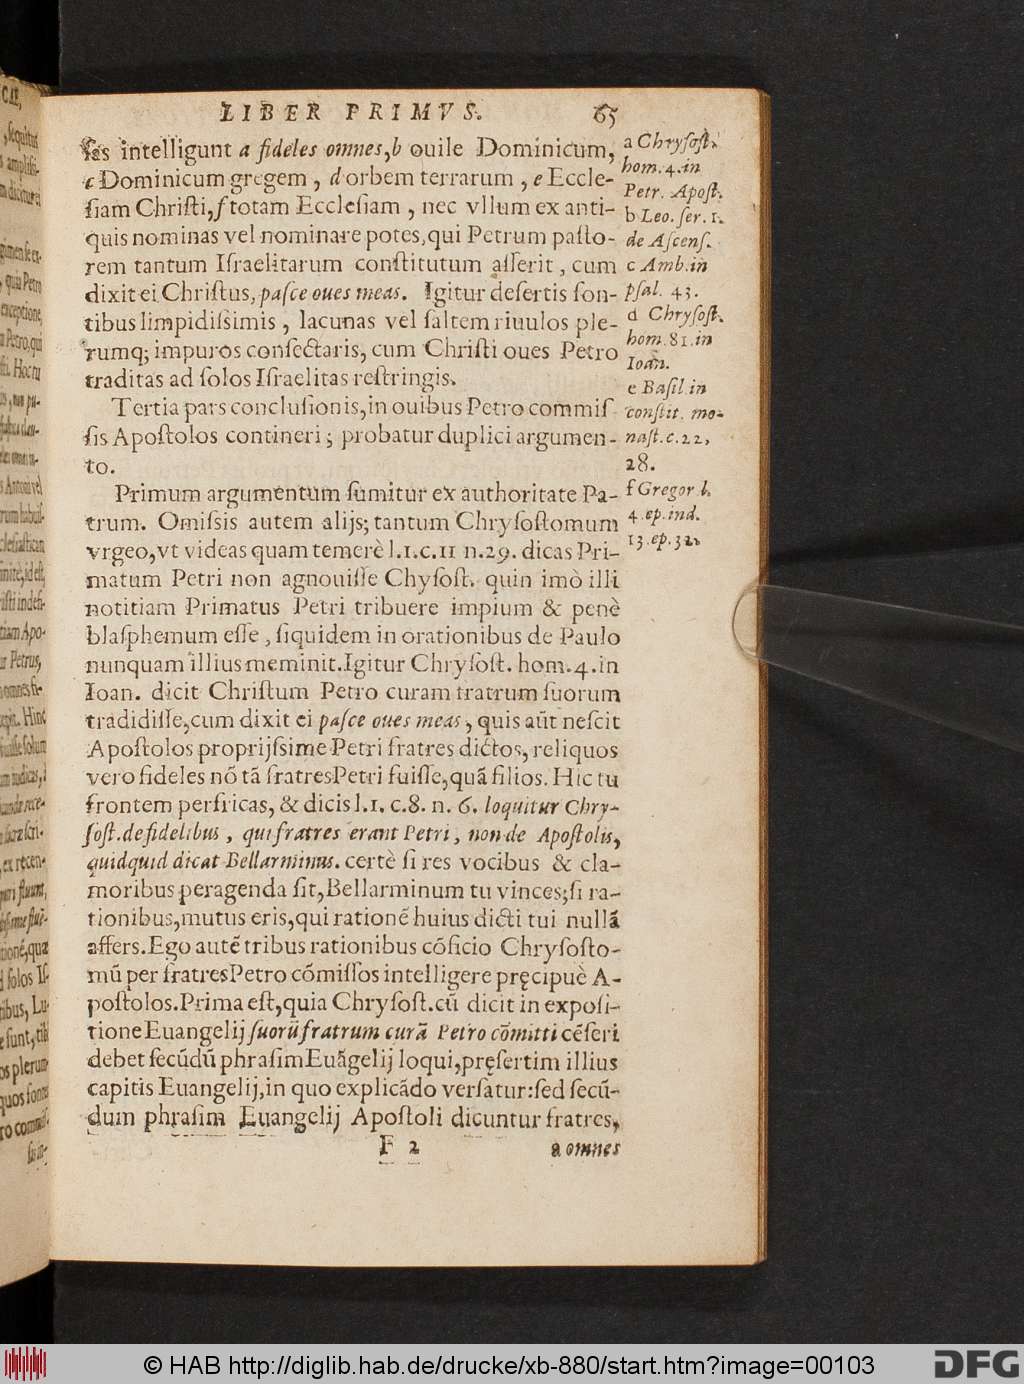 LIBER PRIMVS. 65
ſes intelligunt a fideles omnes, b ouile Dominicum,
c Dominicum gregem, d orbem terrarum, e Eccle-
ſiam Chriſti, f totam Eccleſiam, nec vllum ex anti-
quis nominas vel nominare potes, qui Petrum paſto-
rem tantum Iſraelitarum conſtitutum aſſerit, cum
dixit ei Chriſtus, paſce oues meas. Igitur deſertis fon-
tibus limpidiſsimis, lacunas vel ſaltem riuulos ple-
rumq; impuros conſectaris, cum Chriſti oues Petro
traditas ad ſolos Iſraelitas reſtringis.
Tertia pars concluſionis, in ouibus Petro commiſ
ſis Apoſtolos contineri; probatur duplici argumen-
to.
Primum argumentum ſumitur ex authoritate Pa-
trum. Omiſsis autem alijs; tantum Chryſoſtomum
vrgeo, vt videas quam temerè l.1.c.11 n.29. dicas Pri-
matum Petri non agnouiſſe Chyſoſt. quin imò illi
notitiam Primatus Petri tribuere impium & penè
blaſphemum eſſe, ſiquidem in orationibus de Paulo
nunquam illius meminit. Igitur Chryſoſt. hom. 4. in
Ioan. dicit Chriſtum Petro curam tratrum ſuorum
tradidiſſe, cum dixit ei paſce oues meas, quis aūt neſcit
Apoſtolos proprijſsime Petri fratres dictos, reliquos
vero fideles nō tā fratres Petri fuiſſe, quā filios. Hic tu
frontem perfricas, & dicis l.1. c.8. n. 6. loquitur Chry-
ſoſt. de fidelibus, qui fratres erant Petri, non de Apoſtolis,
quidquid dicat Bellarminus. certè ſi res vocibus & cla-
moribus peragenda ſit, Bellarminum tu vinces; ſi ra-
tionibus, mutus eris, qui rationē huius dicti tui nullā
affers. Ego autē tribus rationibus cōficio Chryſoſto-
mū per fratres Petro cōmiſſos intelligere pręcipuè A-
poſtolos. Prima eſt, quia Chryſoſt. cū dicit in expoſi-
tione Euangelij ſuorū fratrum curā Petro cōmitti cēſeri
debet ſecūdū phraſim Euāgelij loqui, pręſertim illius
capitis Euangelij, in quo explicādo verſatur: ſed ſecū-
dum phraſim Euangelij Apoſtoli dicuntur fratres,
F 2 a omnes
a Chryſoſt.
hom. 4. in
Petr. Apoſt.
b Leo. ſer. 1.
de Aſcenſ.
c Amb. in
pſal. 43.
d Chryſoſt.
hom. 81. in
Ioàn.
e Baſil in
conſtit. mo-
naſt. c. 22,
28.
f Gregor l.
4. ep. ind.
13. ep. 32.
© HAB http://diglib.hab.de/drucke/xb-880/start.htm?image=00103
DFG